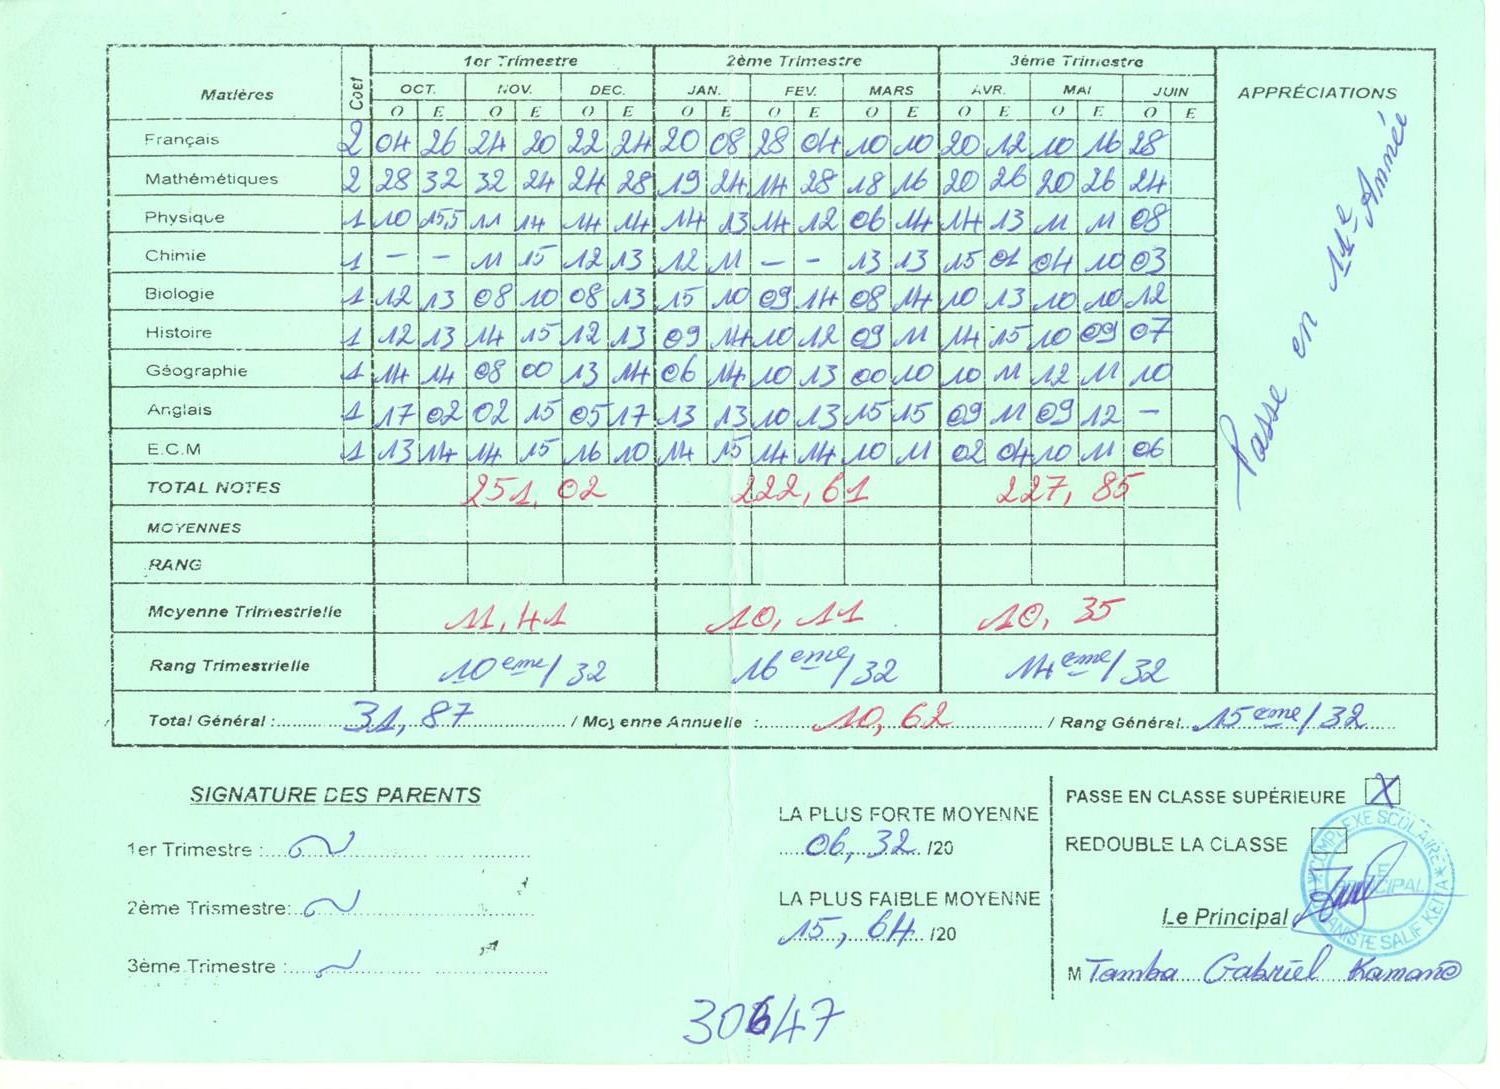 Matières Coef 1er Trimestre 2ème Trimestre 3ème Trimestre APPRÉCIATIONS
OCT. NOV. DEC. JAN. FEV. MARS AVR. MAI JUIN
O E O E O E O E O E O E O E O E O E
Français 2 04 26 24 20 22 24 20 08 28 04 10 10 20 12 10 16 28
Mathémétiques 2 28 32 32 24 24 28 19 24 14 28 18 16 20 26 20 26 24
Physique 1 10 15,5 11 14 14 14 14 13 14 12 06 14 14 13 11 11 08
Chimie 1 - - 11 15 12 13 12 11 - - 13 13 15 01 04 10 03
Biologie 1 12 13 08 10 08 13 15 10 09 14 08 14 10 13 10 10 12
Histoire 1 12 13 14 15 12 13 09 14 10 12 09 11 14 15 10 09 07
Géographie 1 14 14 08 00 13 14 06 14 10 13 00 10 10 11 12 11 10
Anglais 1 17 02 02 15 05 17 13 13 10 13 15 15 09 11 09 12 -
E.C.M 1 13 14 14 15 16 10 14 15 14 14 10 11 02 04 10 11 06
TOTAL NOTES 251,02 222,61 227,85
MOYENNES
RANG
Moyenne Trimestrielle 11,41 10,11 10,35
Rang Trimestrielle 10eme/32 16eme/32 14eme/32
Passe en 11e Année
Total Général : 31,87 / Moyenne Annuelle : 10,62 / Rang Général 15eme/32
SIGNATURE DES PARENTS
1er Trimestre :
2ème Trismestre:
3ème Trimestre :
LA PLUS FORTE MOYENNE
06,32 /20
LA PLUS FAIBLE MOYENNE
15,64 /20
PASSE EN CLASSE SUPÉRIEURE X
REDOUBLE LA CLASSE
COMPLEXE SCOLAIRE
LE PRINCIPAL
SALIF KEITA
Le Principal
M Tamba Gabriel Kamano
30647